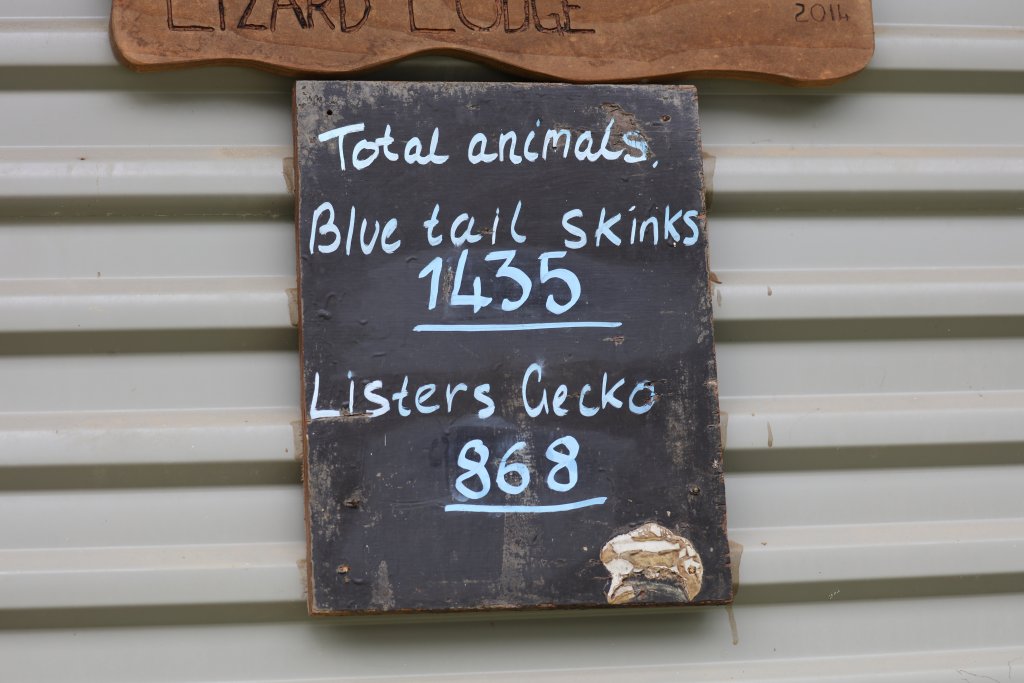 LIZARD LODGE
2014
Total animals.
Blue tail skinks
1435
Listers Gecko
868